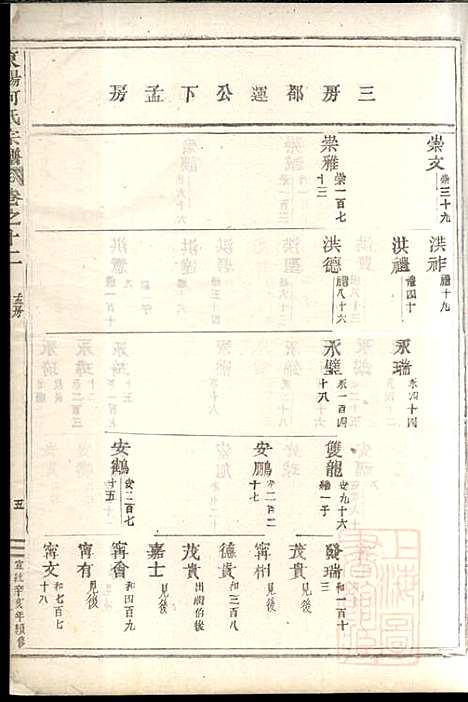 三房都運公下孟房
崇文 崇三十九
崇雅 崇一百七十三
洪祚 禮十九
洪禮 禮四十
洪德 禮八十六
永瑞 永四十四
永璧 永一百四十八
雙龍 安九十六 繼一子
安鵬 十七
安鶴 安二百七十五
瑞 和一百十三
茂貴 見後
甯相 見後
德貴 和三百八
茂貴 出嗣的後
嘉士 見後
甯會 和四百九
甯有 見後
甯文 和七百七十八
東陽何氏宗譜 卷之十二
五
宣統辛亥年續修
上海圖書館藏